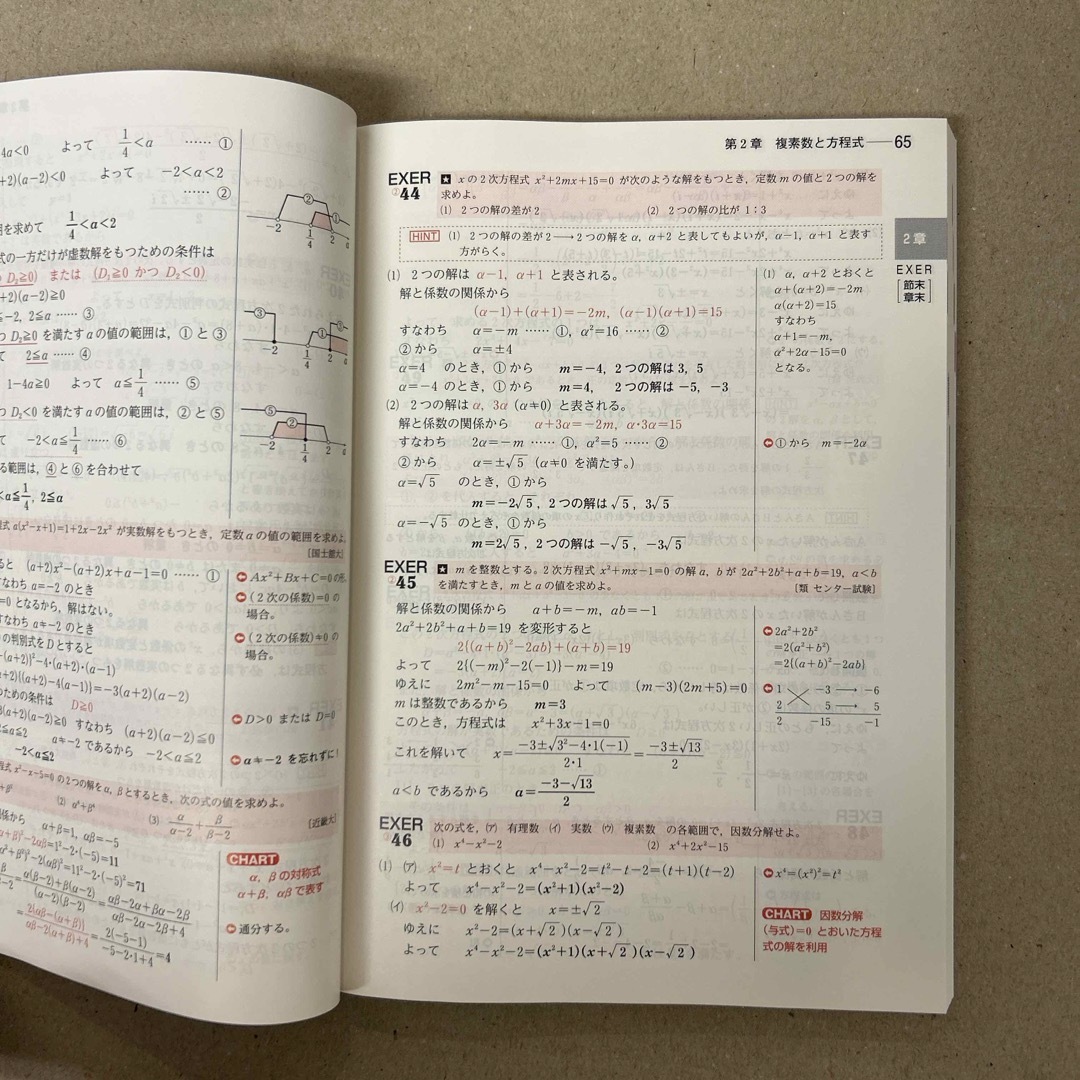 4a<0 よって 1/4<a …… ①
+2)(a-2)<0 よって -2<a<2
…… ②
求めて 1/4<a<2
式の一方だけが虚数解をもつための条件は
D₂≧0) または (D₁≧0 かつ D₂<0)
+2)(a-2)≧0
≦-2, 2≦a …… ③
D₂≧0 を満たす a の値の範囲は，①と③
2≦a …… ④
1-4a≧0 よって a≦1/4 …… ⑤
D₂<0 を満たす a の値の範囲は，②と⑤
-2<a≦1/4 …… ⑥
る範囲は，④と⑥を合わせて
<a≦1/4, 2≦a
式 a(x²-x+1)=1+2x-2x² が実数解をもつとき，定数 a の値の範囲を求めよ。
[国士舘大]
ると (a+2)x²-(a+2)x+a-1=0 …… ①
すなわち a=-2 のとき
=0 となるから，解はない。
すなわち a≠-2 のとき
の判別式を D とすると
-(a+2)}²-4・(a+2)・(a-1)
+2){(a+2)-4(a-1)}=-3(a+2)(a-2)
ための条件は D≧0
(a+2)(a-2)≧0 すなわち (a+2)(a-2)≦0
≦a≦2 a≠-2 であるから -2<a≦2
-2<a≦2
Ax²+Bx+C=0 の形。
(2次の係数)=0 の
場合。
(2次の係数)≠0 の
場合。
D>0 または D=0
a≠-2 を忘れずに!
程式 x²-x-5=0 の2つの解を α, β とするとき，次の式の値を求めよ。
(2) α⁴+β⁴ (3) α/(α-2)+β/(β-2) [近畿大]
関係から α+β=1, αβ=-5
α+β)²-2αβ=1²-2・(-5)=11
α²+β²)²-2(αβ)²=11²-2・(-5)²=71
β/(β-2)=(α(β-2)+β(α-2))/((α-2)(β-2))=(αβ-2α+αβ-2β)/(αβ-2α-2β+4)
=(2{αβ-(α+β)})/(αβ-2(α+β)+4)=2(-5-1)/(-5-2・1+4)=4
CHART
α, β の対称式
α+β, αβ で表す
通分する。
第2章 複素数と方程式――65
2章
EXER
[節末 章末]
EXER 44 ★ x の2次方程式 x²+2mx+15=0 が次のような解をもつとき，定数 m の値と2つの解を
求めよ。
(1) 2つの解の差が2 (2) 2つの解の比が 1：3
HINT (1) 2つの解の差が2 ⟶ 2つの解を α, α+2 と表してもよいが，α-1, α+1 と表す
方がらく。
(1) 2つの解は α-1, α+1 と表される。
解と係数の関係から
(α-1)+(α+1)=-2m, (α-1)(α+1)=15
すなわち α=-m …… ①, α²=16 …… ②
②から α=±4
α=4 のとき，①から m=-4, 2つの解は 3, 5
α=-4 のとき，①から m=4, 2つの解は -5, -3
(1) α, α+2 とおくと
α+(α+2)=-2m
α(α+2)=15
すなわち
α+1=-m,
α²+2α-15=0
となる。
(2) 2つの解は α, 3α (α≠0) と表される。
解と係数の関係から α+3α=-2m, α・3α=15
すなわち 2α=-m …… ①, α²=5 …… ②
①から m=-2α
②から α=±√5 (α≠0 を満たす。)
α=√5 のとき，①から
m=-2√5, 2つの解は √5, 3√5
α=-√5 のとき，①から
m=2√5, 2つの解は -√5, -3√5
EXER 45 ★ m を整数とする。2次方程式 x²+mx-1=0 の解 a, b が 2a²+2b²+a+b=19, a<b
を満たすとき，m と a の値を求めよ。 [類 センター試験]
解と係数の関係から a+b=-m, ab=-1
2a²+2b²+a+b=19 を変形すると
2{(a+b)²-2ab}+(a+b)=19
よって 2{(-m)²-2(-1)}-m=19
ゆえに 2m²-m-15=0 よって (m-3)(2m+5)=0
m は整数であるから m=3
このとき，方程式は x²+3x-1=0
これを解いて x=(-3±√(3²-4・1(-1)))/(2・1)=(-3±√13)/2
a<b であるから a=(-3-√13)/2
2a²+2b²
=2(a²+b²)
=2{(a+b)²-2ab}
1 -3 ⟶ -6
2 5 ⟶ 5
2 -15 -1
EXER 46 次の式を，㋐ 有理数 ㋑ 実数 ㋒ 複素数 の各範囲で，因数分解せよ。
(1) x⁴-x²-2 (2) x⁴+2x²-15
(1) ㋐ x²=t とおくと x⁴-x²-2=t²-t-2=(t+1)(t-2)
よって x⁴-x²-2=(x²+1)(x²-2)
㋑ x²-2=0 を解くと x=±√2
ゆえに x²-2=(x+√2)(x-√2)
よって x⁴-x²-2=(x²+1)(x+√2)(x-√2)
x⁴=(x²)²=t²
CHART 因数分解
(与式)=0 とおいた方程
式の解を利用